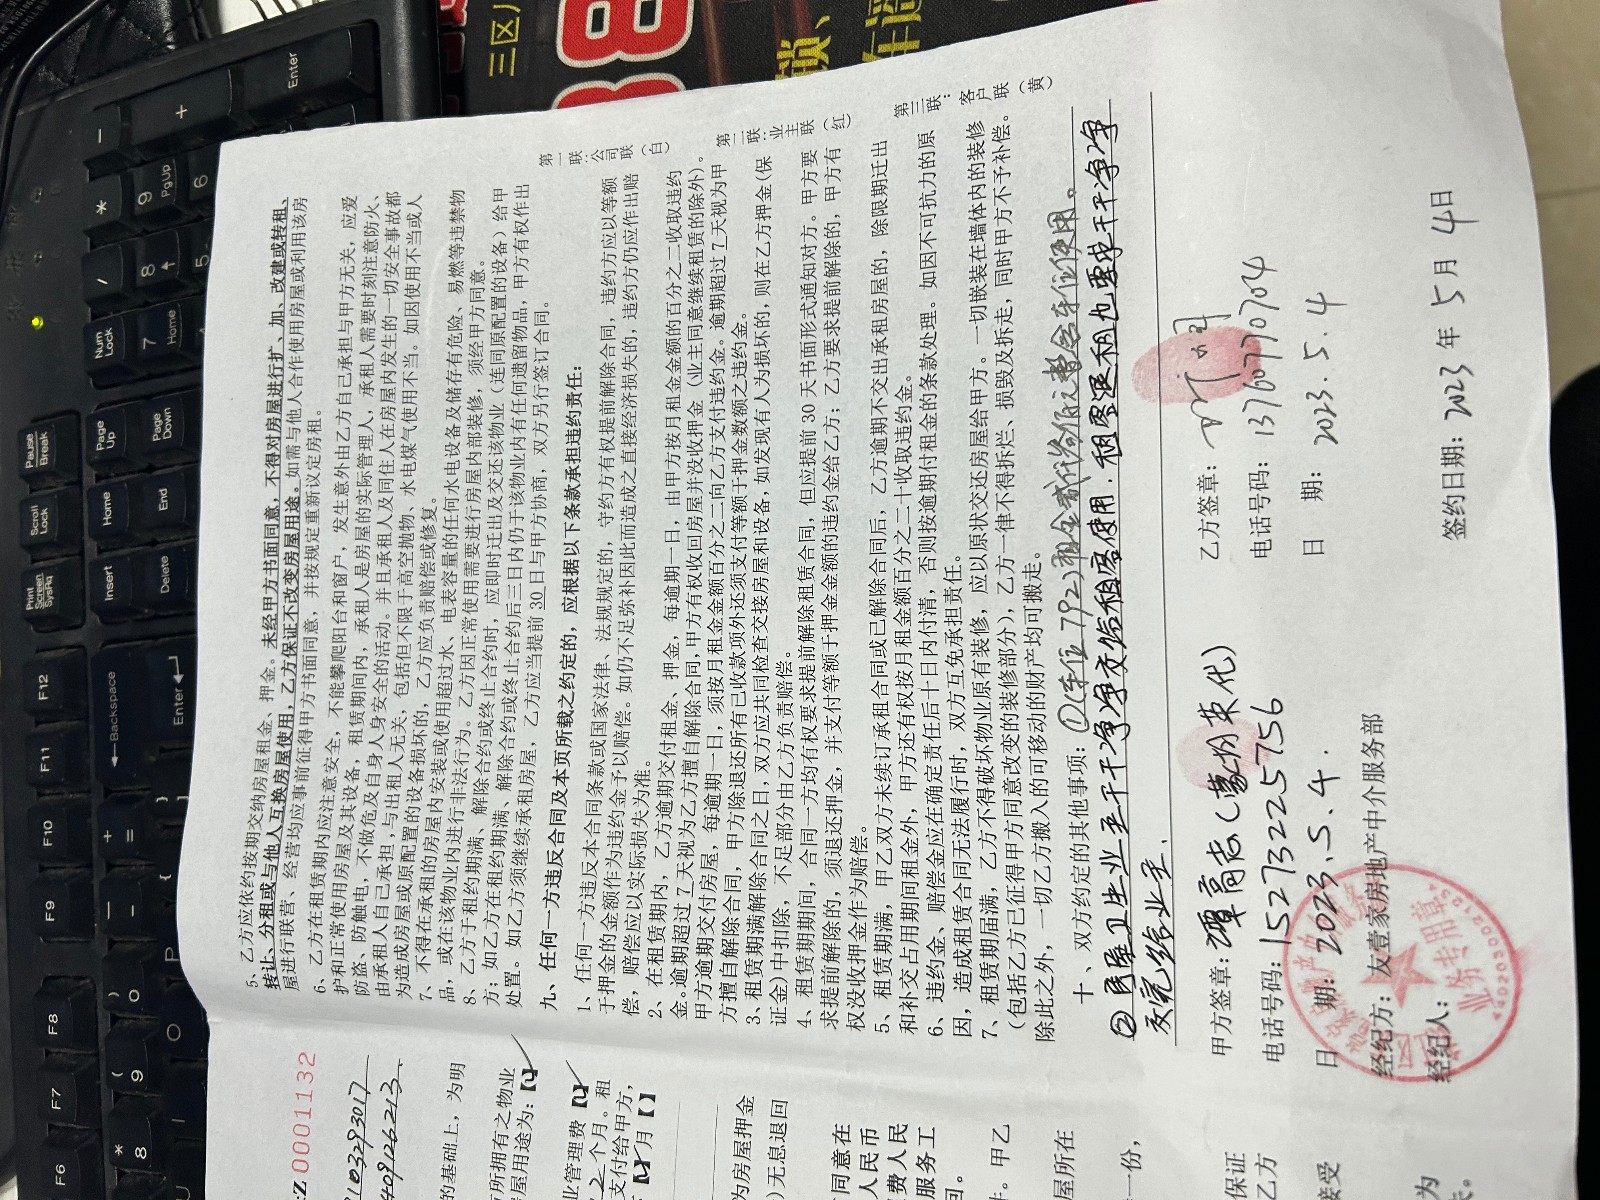 5、乙方应依约按期交纳房屋租金、押金。未经甲方书面同意，不得对房屋进行扩、加、改建或转租、
转让、分租或与他人互换房屋使用，乙方保证不改变房屋用途。如需与他人合作使用房屋或利用该房
屋进行联营、经营均应事前征得甲方书面同意，并按规定重新议定房租。
6、乙方在租赁期内应注意安全，不能攀爬阳台和窗户，发生意外由乙方自己承担与甲方无关，应爱
护和正常使用房屋及其设备，租赁期间内，承租人是房屋的实际管理人，承租人需要时刻注意防火、
防盗、防触电，不做危及自身人身安全的活动。并且承租人及同住人在房屋内发生的一切安全事故都
由承租人自己承担，与出租人无关，包括但不限于高空抛物、水电煤气使用不当。如因使用不当或人
为造成房屋或原配置的设备损坏的，乙方应负责赔偿或修复。
7、不得在承租的房屋内安装或使用超过水、电表容量的任何水电设备及储存有危险、易燃等违禁物
品，或在该物业内进行非法行为。乙方因正常使用需要进行房屋内部装修，须经甲方同意。
8、乙方于租约期满、解除合约或终止合约时，应即时迁出及交还该物业（连同原配置的设备）给甲
方；如乙方在租约期满、解除合约或终止合约后三日内仍于该物业内有任何遗留物品，甲方有权作出
处置。如乙方须继续承租房屋，乙方应当提前30日与甲方协商，双方另行签订合同。
九、任何一方违反合同及本页所载之约定的，应根据以下条款承担违约责任：
1、任何一方违反本合同条款或国家法律、法规规定的，守约方有权提前解除合同，违约方应以等额
于押金的金额作为违约金予以赔偿。如仍不足弥补因此而造成之直接经济损失的，违约方仍应作出赔
偿，赔偿应以实际损失为准。
2、在租赁期内，乙方逾期交付租金、押金，每逾期一日，由甲方按月租金金额的百分之二收取违约
金。逾期超过7天视为乙方擅自解除合同，甲方有权收回房屋并没收押金（业主同意继续租赁的除外）。
甲方逾期交付房屋，每逾期一日，须按月租金金额百分之二向乙方支付违约金。逾期超过7天视为甲
方擅自解除合同，甲方除退还所有已收款项外还须支付等额于押金数额之违约金。
3、租赁期满解除合同之日，双方应共同检查交接房屋和设备，如发现有人为损坏的，则在乙方押金(保
证金)中扣除，不足部分由乙方负责赔偿。
4、租赁期期间，合同一方均有权要求提前解除租赁合同，但应提前30天书面形式通知对方。甲方要
求提前解除的，须退还押金，并支付等额于押金金额的违约金给乙方；乙方要求提前解除的，甲方有
权没收押金作为赔偿。
5、租赁期满，甲乙双方未续订承租合同或已解除合同后，乙方逾期不交出承租房屋的，除限期迁出
和补交占用期间租金外，甲方还有权按月租金额百分之二十收取违约金。
6、违约金、赔偿金应在确定责任后十日内付清，否则按逾期付租金的条款处理。如因不可抗力的原
因，造成租赁合同无法履行时，双方互免承担责任。
7、租赁期届满，乙方不得破坏物业原有装修，应以原状交还房屋给甲方。一切嵌装在墙体内的装修
（包括乙方已征得甲方同意改变的装修部分），乙方一律不得拆烂、损毁及拆走，同时甲方不予补偿。
除此之外，一切乙方搬入的可移动的财产均可搬走。
十、双方约定的其他事项：①车位792
②房屋卫生业主干干净净交给租客使用，租客退租也要求干干净净
交完给业主．
甲方签章：谭高志（
乙方签章：
电话号码：15273225756
电话号码：13760770704
日 期：2023.5.4.
日 期：2023.5.4
经纪方：友壹家房地产中介服务部
经纪人：
签约日期：2023年5月4日
业务专用章
第一联：公司联（白）
第二联：业主联（红）
第三联：客户联（黄）
0001132
的基础上，为明
所拥有之物业
屋用途为：【
业管理费【
个月。租
支付给甲方，
月【 】
为房屋押金
）无息退回
同意在
人民币
费人民
服务工
回。
。甲乙
屋所在
一份，
保证
乙方
接受
为
三区
88
Print Screen SysRq
Scroll Lock
Pause Break
Insert
Home
Page Up
Delete
End
Page Down
Num Lock
/
*
−
7 Home
8
9 PgUp
+
5
6
Enter
F6
F7
F8
F9
F10
F11
F12
Backspace
Enter
* 8
( 9
) 0
O
P